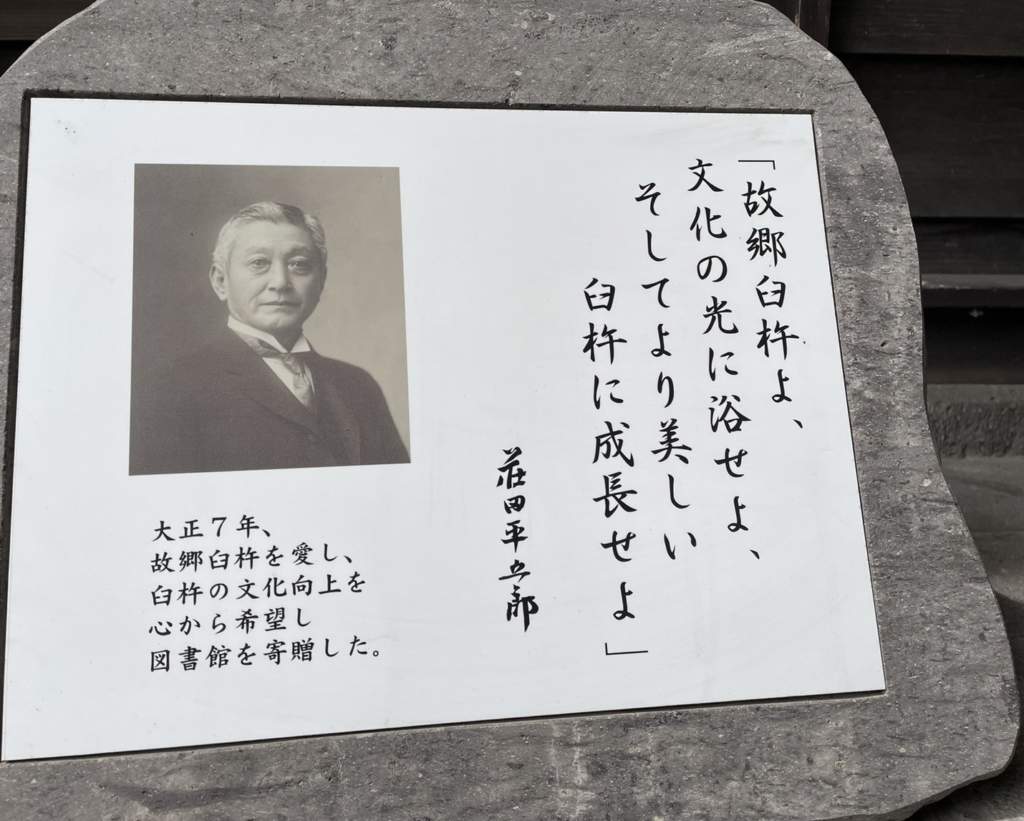 「故郷臼杵よ、
文化の光に浴せよ、
そしてより美しい
臼杵に成長せよ」
荘田平五郎
大正7年、
故郷臼杵を愛し、
臼杵の文化向上を
心から希望し
図書館を寄贈した。